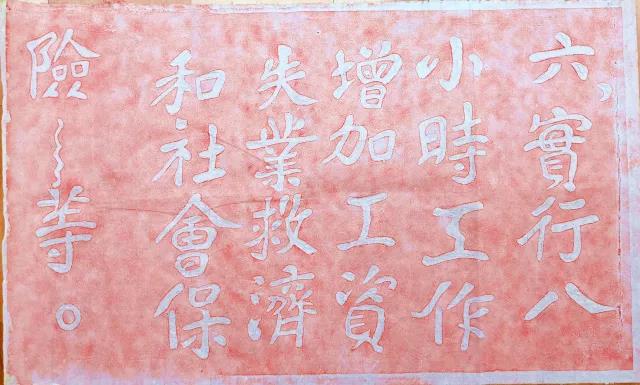 六、實行八
小時工作
增加工資
失業救濟
和社會保
險~~等。